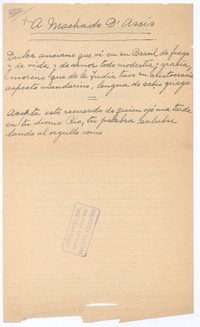 A Machado D'Assis
Dulce anciano que vi en su Brasil de fuego
y de vida y de amor todo modestia y gracia,
moreno que de la India tuvo su aristocracia
aspecto mandarino, lengua de sabio griego.
Acepta este recuerdo de quien oyó una tarde
en tu divino Rio, tu palabra salubre
dando al orgullo como